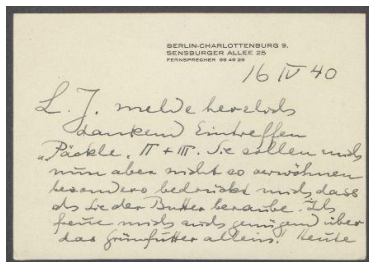 BERLIN-CHARLOTTENBURG 9,
SENSBURGER ALLEE 25
FERNSPRECHER 99 48 29
16 IV 40
L. J. melde herzlichs
dankend Eintreffen
"Päckle" II + III. Sie sollen mich
nun aber nicht so verwöhnen
besonders bedrückt mich dass
ich Sie der Butter beraube. Ich
freue mich auch genügend über
das Grünfutter allein! Heute